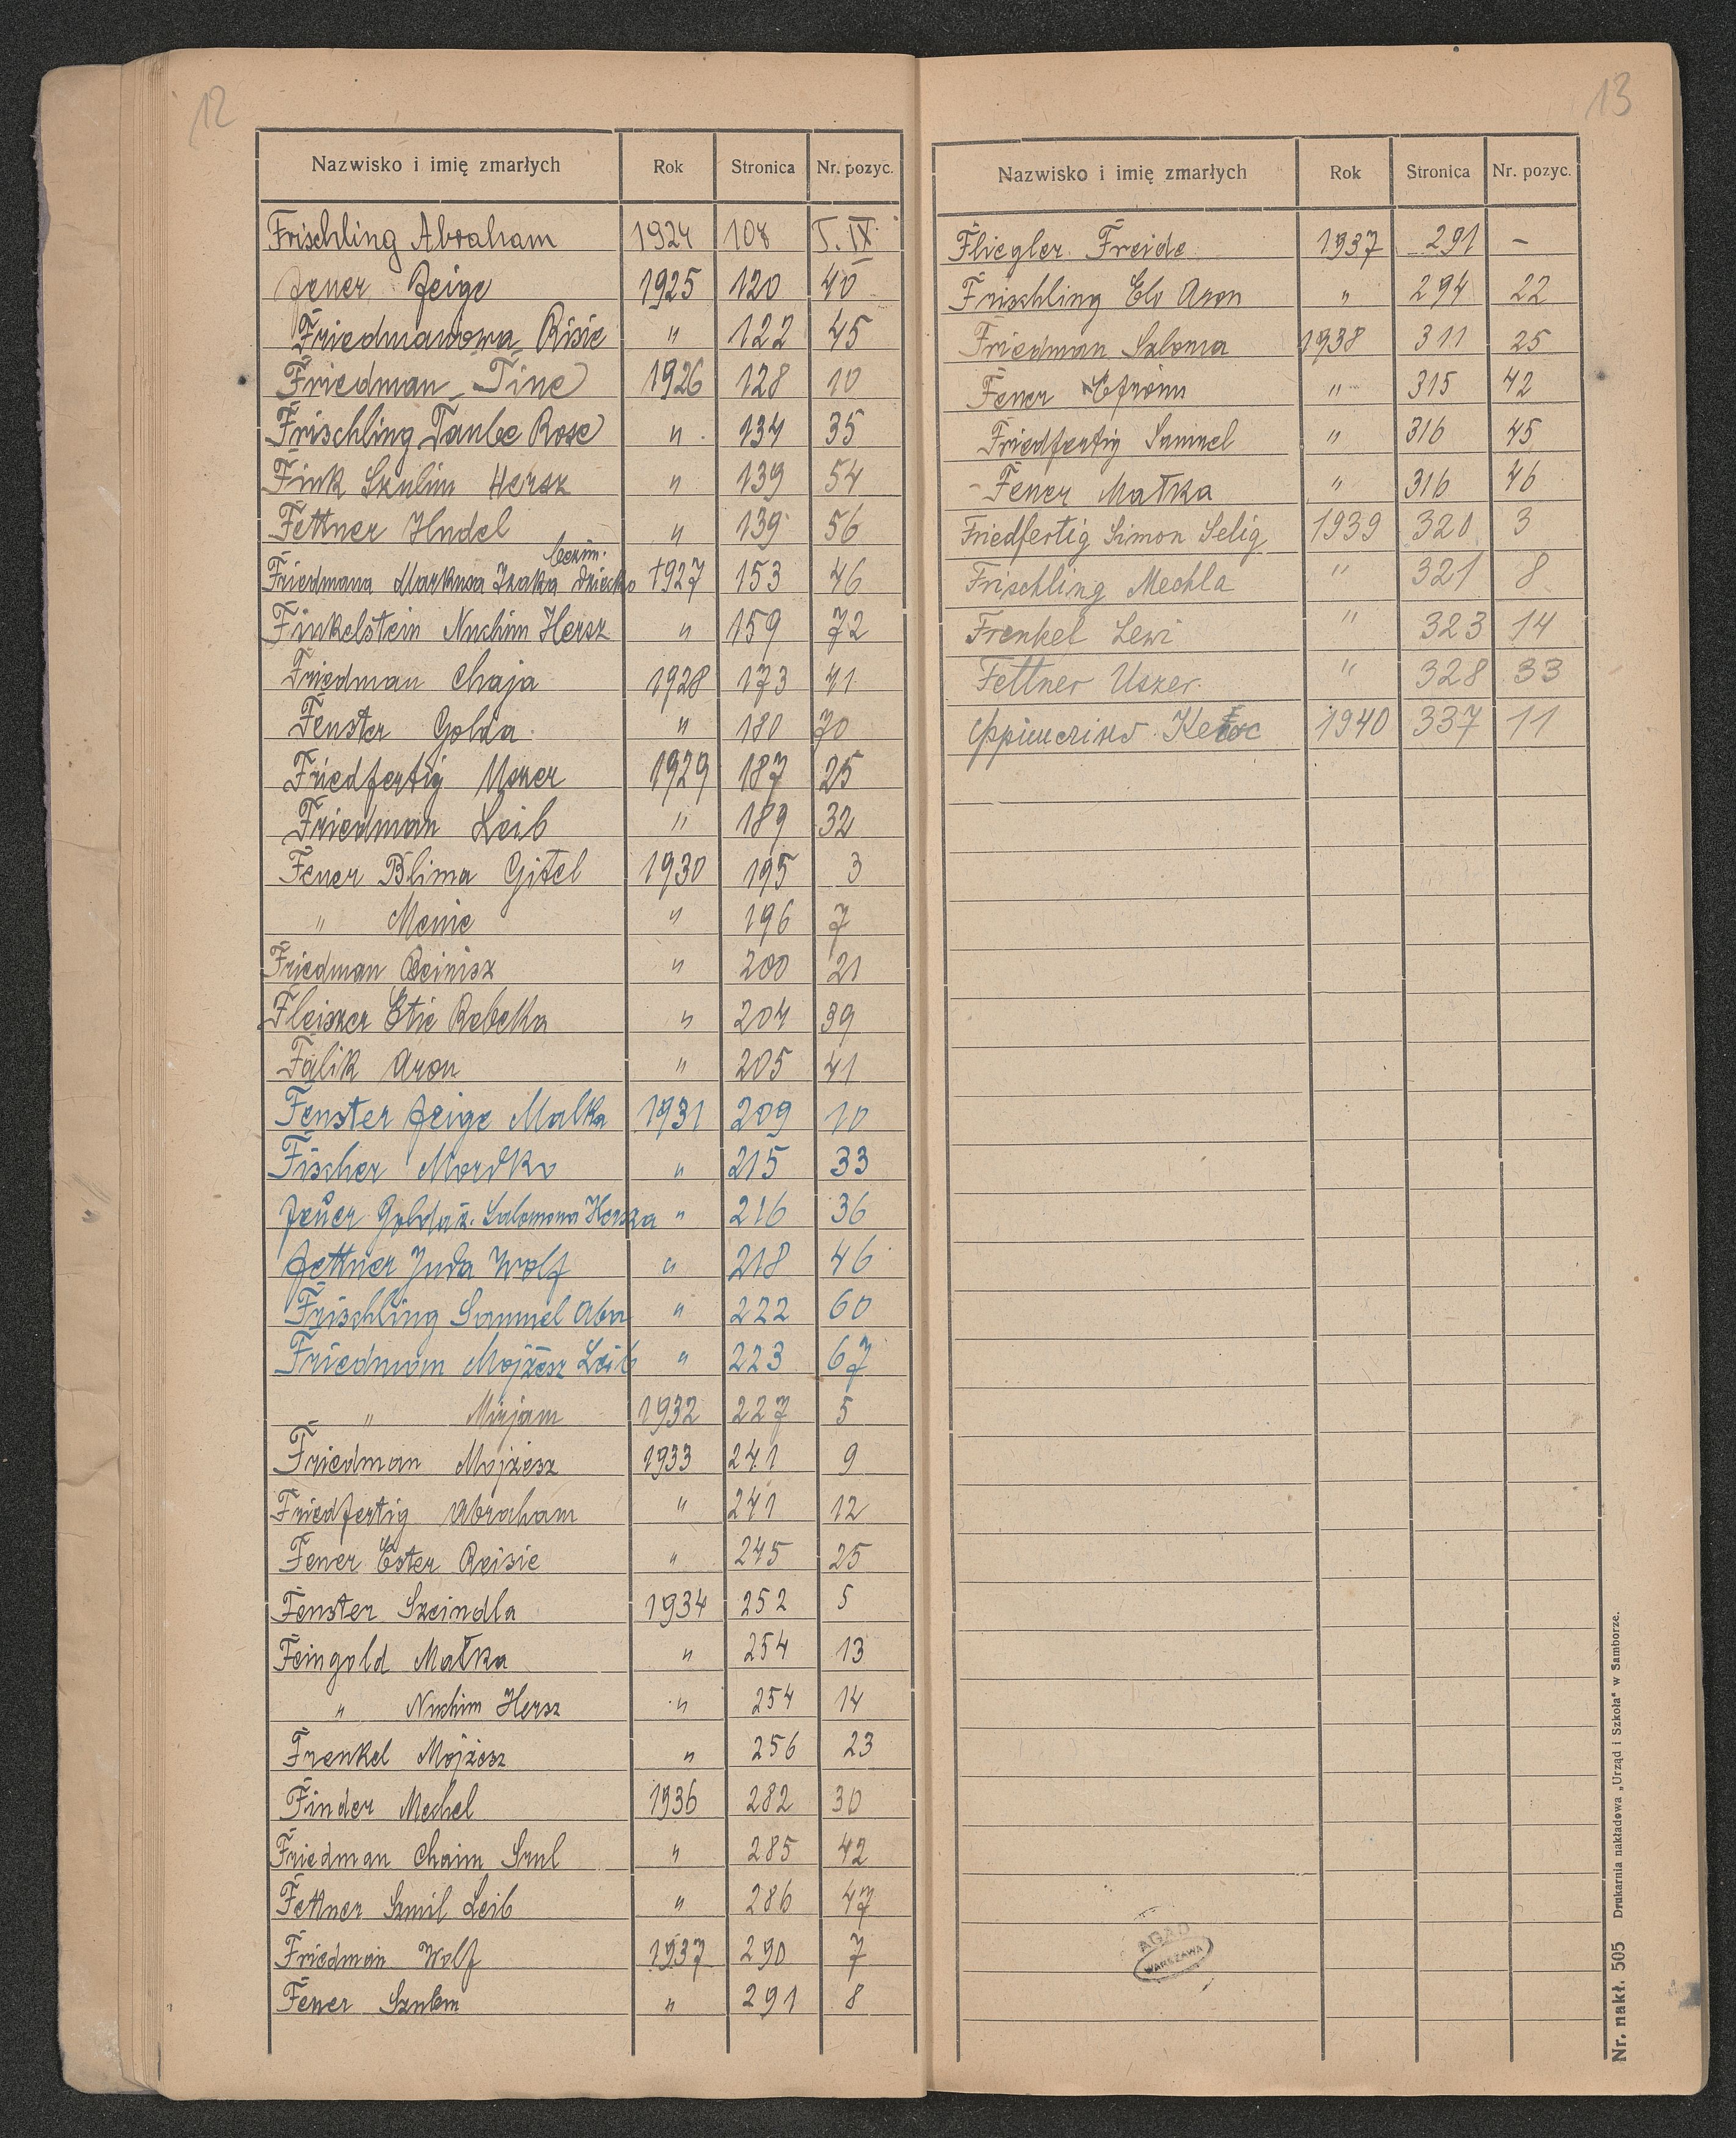 12
Nazwisko i imię zmarłych Rok Stronica Nr. pozyc.
Frischling Abraham 1924 108 T. IX
Feuer Feige 1925 120 40
Friedmanowa Risie " 122 45
Friedman Tine 1926 128 10
Frischling Taube Rose " 134 35
Fink Szulim Hersz " 139 54
Fettner Hudel " 139 56
bezim.
Friedmana Markusa Izaka dziecko 1927 153 46
Finkelstein Nuchim Hersz " 159 72
Friedman Chaja 1928 173 41
Fenster Golda " 180 70
Friedfertig Uszer 1929 187 25
Friedman Leib " 189 32
Feuer Blima Gitel 1930 195 3
" Menie " 196 7
Friedman Beinisz " 200 21
Fleiszer Etie Rebeka " 204 39
Falik Aron " 205 41
Fenster Feige Malka 1931 209 10
Fischer Mordko " 215 33
Feuer Golda ż. Salomona Hersza " 216 36
Fettner Juda Wolf " 218 46
Frischling Samuel Aba " 222 60
Friedman Mojżesz Leib " 223 67
" Mirjam 1932 227 5
Friedman Mojżesz 1933 241 9
Friedfertig Abraham " 241 12
Feuer Ester Reisie " 245 25
Fenster Szeindla 1934 252 5
Feingold Małka " 254 13
" Nuchim Hersz " 254 14
Frenkel Mojżesz " 256 23
Finder Mechel 1936 282 30
Friedman Chaim Srul " 285 42
Fettner Szmil Leib " 286 47
Friedman Wolf 1937 290 7
Feuer Szulem " 291 8
13
Nazwisko i imię zmarłych Rok Stronica Nr. pozyc.
Fliegler Freide 1937 291 –
Frischling Elo Aron " 294 22
Friedman Szloma 1938 311 25
Feuer Efroim " 315 42
Friedfertig Samuel " 316 45
Feuer Małka " 316 46
Friedfertig Simon Selig 1939 320 3
Frischling Mechla " 321 8
Frenkel Lewi " 323 14
Fettner Uszer " 328 33
1940 337 11
AGAD
WARSZAWA
Nr. nakł. 505 Drukarnia nakładowa „Urząd i Szkoła" w Samborze.